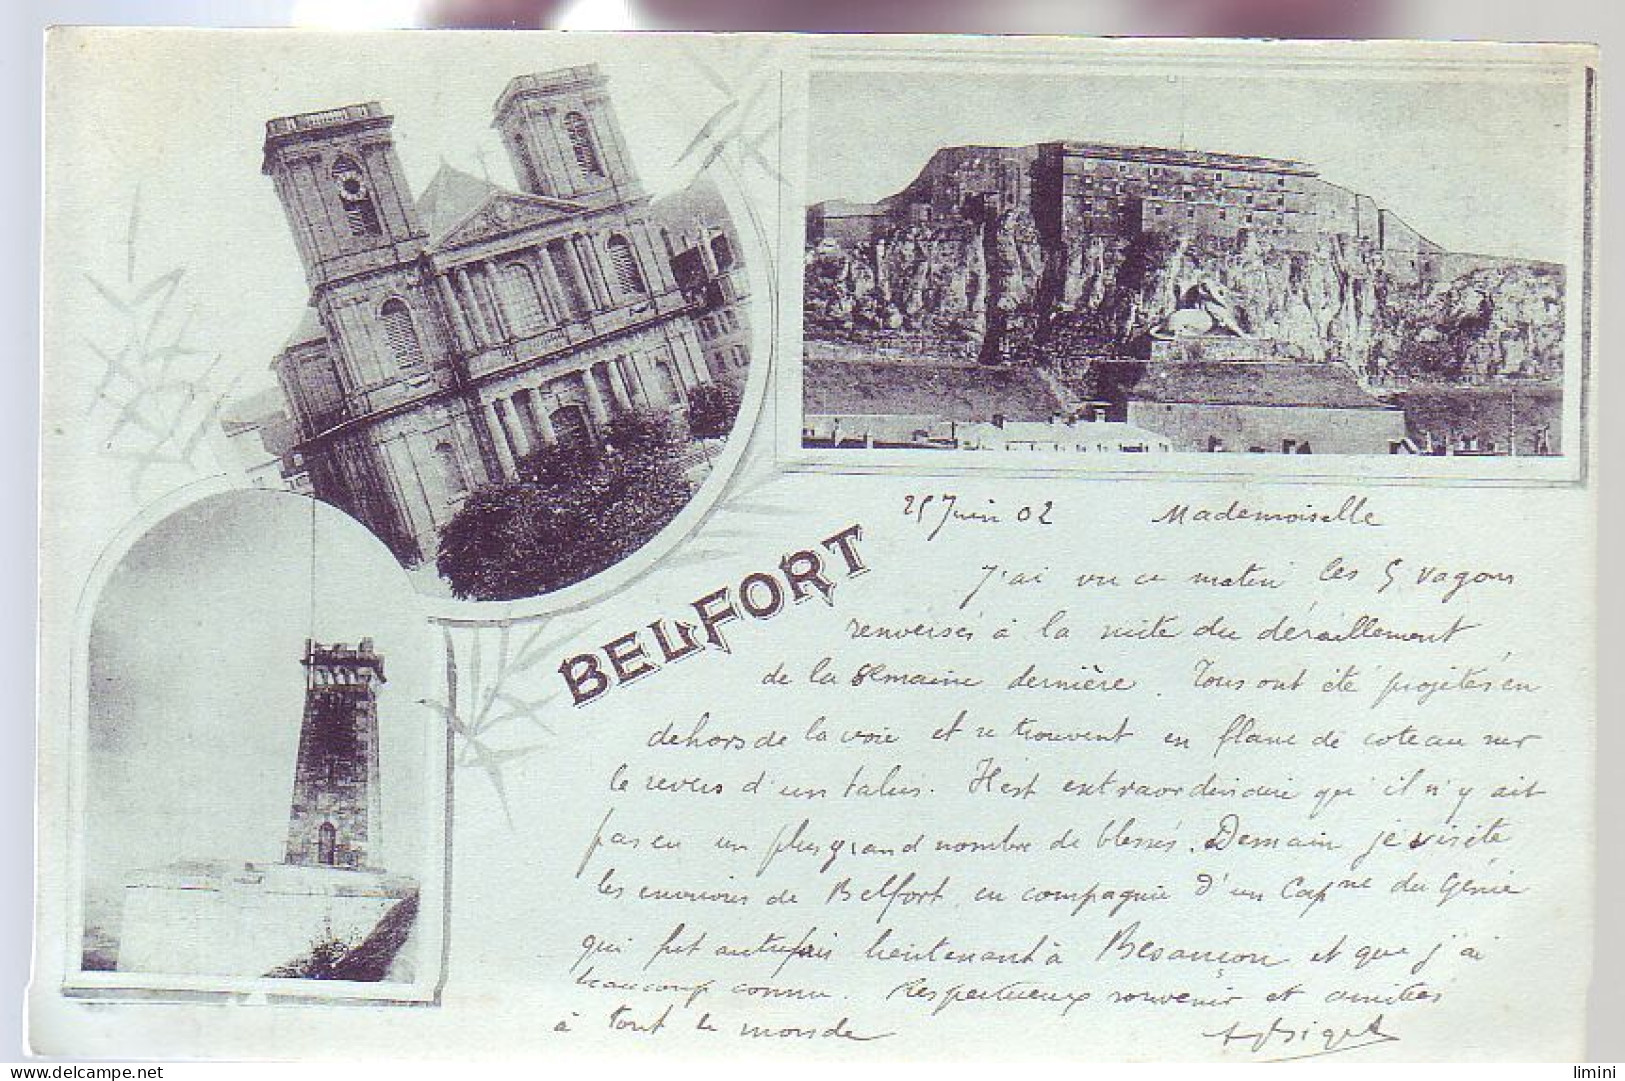 BELFORT
25 Juin 02 Mademoiselle
J'ai vu ce matin les 5 vagons
renversés à la suite du déraillement
de la semaine dernière. Tous ont été projetés en
dehors de la voie et se trouvent en flanc de coteau sur
le revers d'un talus. Il est extraordinaire qu'il n'y ait
pas eu un plus grand nombre de blessés. Demain je visite
les environs de Belfort en compagnie d'un Capne du Génie
qui fut autrefois lieutenant à Besançon et que j'ai
beaucoup connu. Respectueux souvenir et amitiés
à tout le monde
limini
delcampe.net